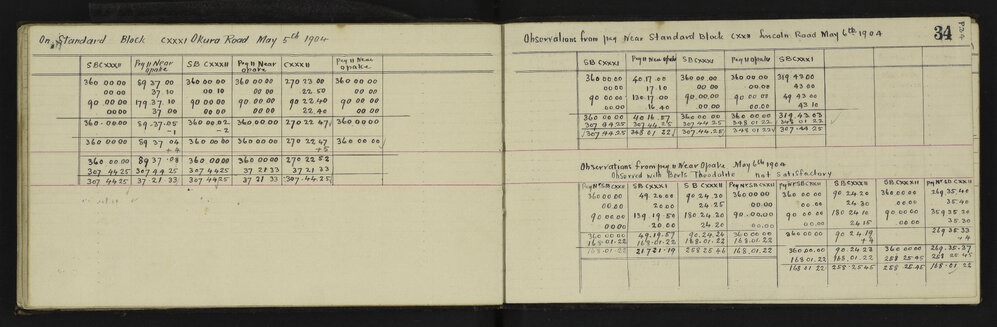 On Standard Block CXXXI Okura Road May 5th 1904
SBCXXXII Peg II Near Opake SB CXXXII Peg II Near Opake CXXXII Peg II Near Opake
360 00 00 89 37 00 360 00 00 360 00 00 270 23 00 360 00 00
00 00 37 10 00 10 00 00 22 50 00 00
90 00 00 179 37 10 90 00 00 90 00 00 90 22 40 90 00 00
00 00 37 00 00 00 00 00 22 40 00 00
360.00.00 89.37.05 360 00 02 360 00 00 270 22 47 360 00 00
-1 -2
360 00 00 89 37 04 360 00 00 360 00 00 270 22 47 360 00 00
+4 +5
360 00 00 89 37.08 360 00 00 360 00 00 270 22 52
307 44 25 307 44 25 307 44 25 37 21 33 37 21 33
307 44 25 37.21.33 307 44 25 37 21 33 307.44.25
34
P34
Observations from peg Near Standard Block CXXII Lincoln Road May 6th 1904
SB CXXXI Peg II Near Opake SB CXXXI Peg II Opake SB CXXXI
360 00 00 40 17.00 360 00 00 360 00 00 319.43.00
00 00 17.10 00 00 00 00 43 00
90 00 00 130.17.00 90.00.00 90 00 00 49 43 00
00 00 16.40 00.00 00 00 43 10
360 00 00 40 16.57 360 00 00 360 00 00 319.43.03
307 44 25 307 44.25 307 44 25 348 01 22 348 01 22
307 44 25 348 01 22 307.44.25 348 01 22 307.44 25
Observations from peg II Near Opake May 6th 1904
Observed with Berts Theodolite not Satisfactory
Peg Nr SB CXXII SB CXXXI SB CXXXII Peg Nr SB CXXII Peg Nr SB CXXII SB CXXXII SB CXXXII Peg Nr SB CXXII
360 00 00 49.20.00 90 24.30 360 00 00 360 00 00 90.24.20 360 00 00 269.35.40
00.00 20.00 24.25 00.00 00 00 24.30 00.00 35.40
90 00 00 139.19.50 180 24.20 90.00.00 90 00 00 180 24 10 90 00 00 359 35.20
00.00 20 00 24 20 00.00 00.00 24 15 00 00 35.30
360 00 00 49.19.57 90.24.24 360 00 00 360 00 00 90 24 19 269 35.33
168.01.22 168.01.22 168 01.22 168.01.22 +4 +4
168.01.22 217 21.19 258 25 46 168.01.22 360 00.00 90 24 23 360 00 00 269.35.37
168 01.22 168.01.22 258 25.45 258 25 45
168 01 22 258.25 45 258 25.45 168.01 22